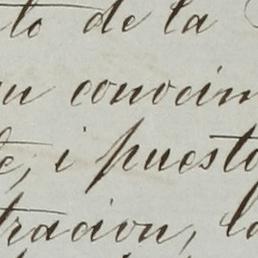 to de la
su convein
te, i puesto
tracion, la